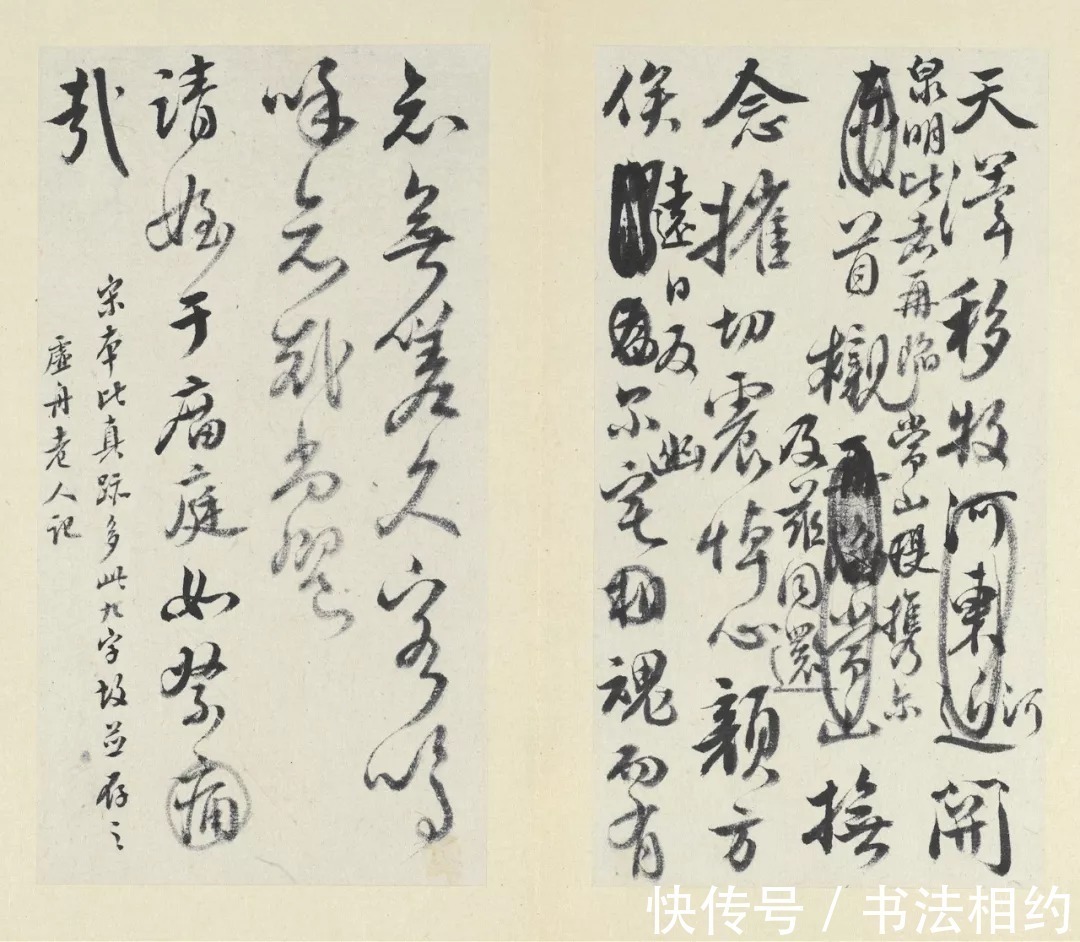 天澤移牧河東近河開
泉明比者再陷常山携尔
首櫬再陷常山撫
及茲同還
念摧切震悼心顏方
遠日
俟尔幽宅魂而有
知無嗟久客嗚
呼哀哉尚饗
請姪于庿庭如祭痛
哉
宋本比真跡多此九字故並存之
虛舟老人記
快传号 / 书法相约